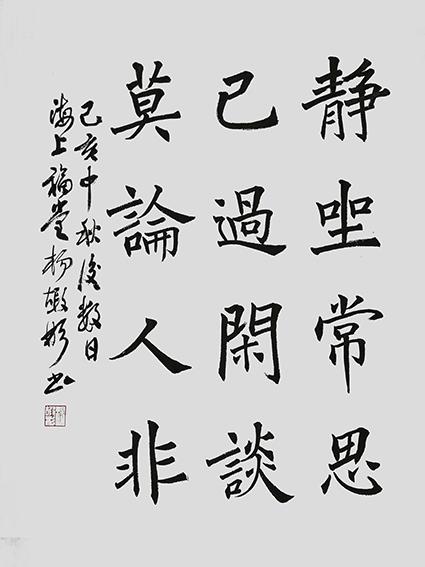 靜坐常思
己過閑談
莫論人非
己亥中秋後數日
海上福堂楊敏彬书